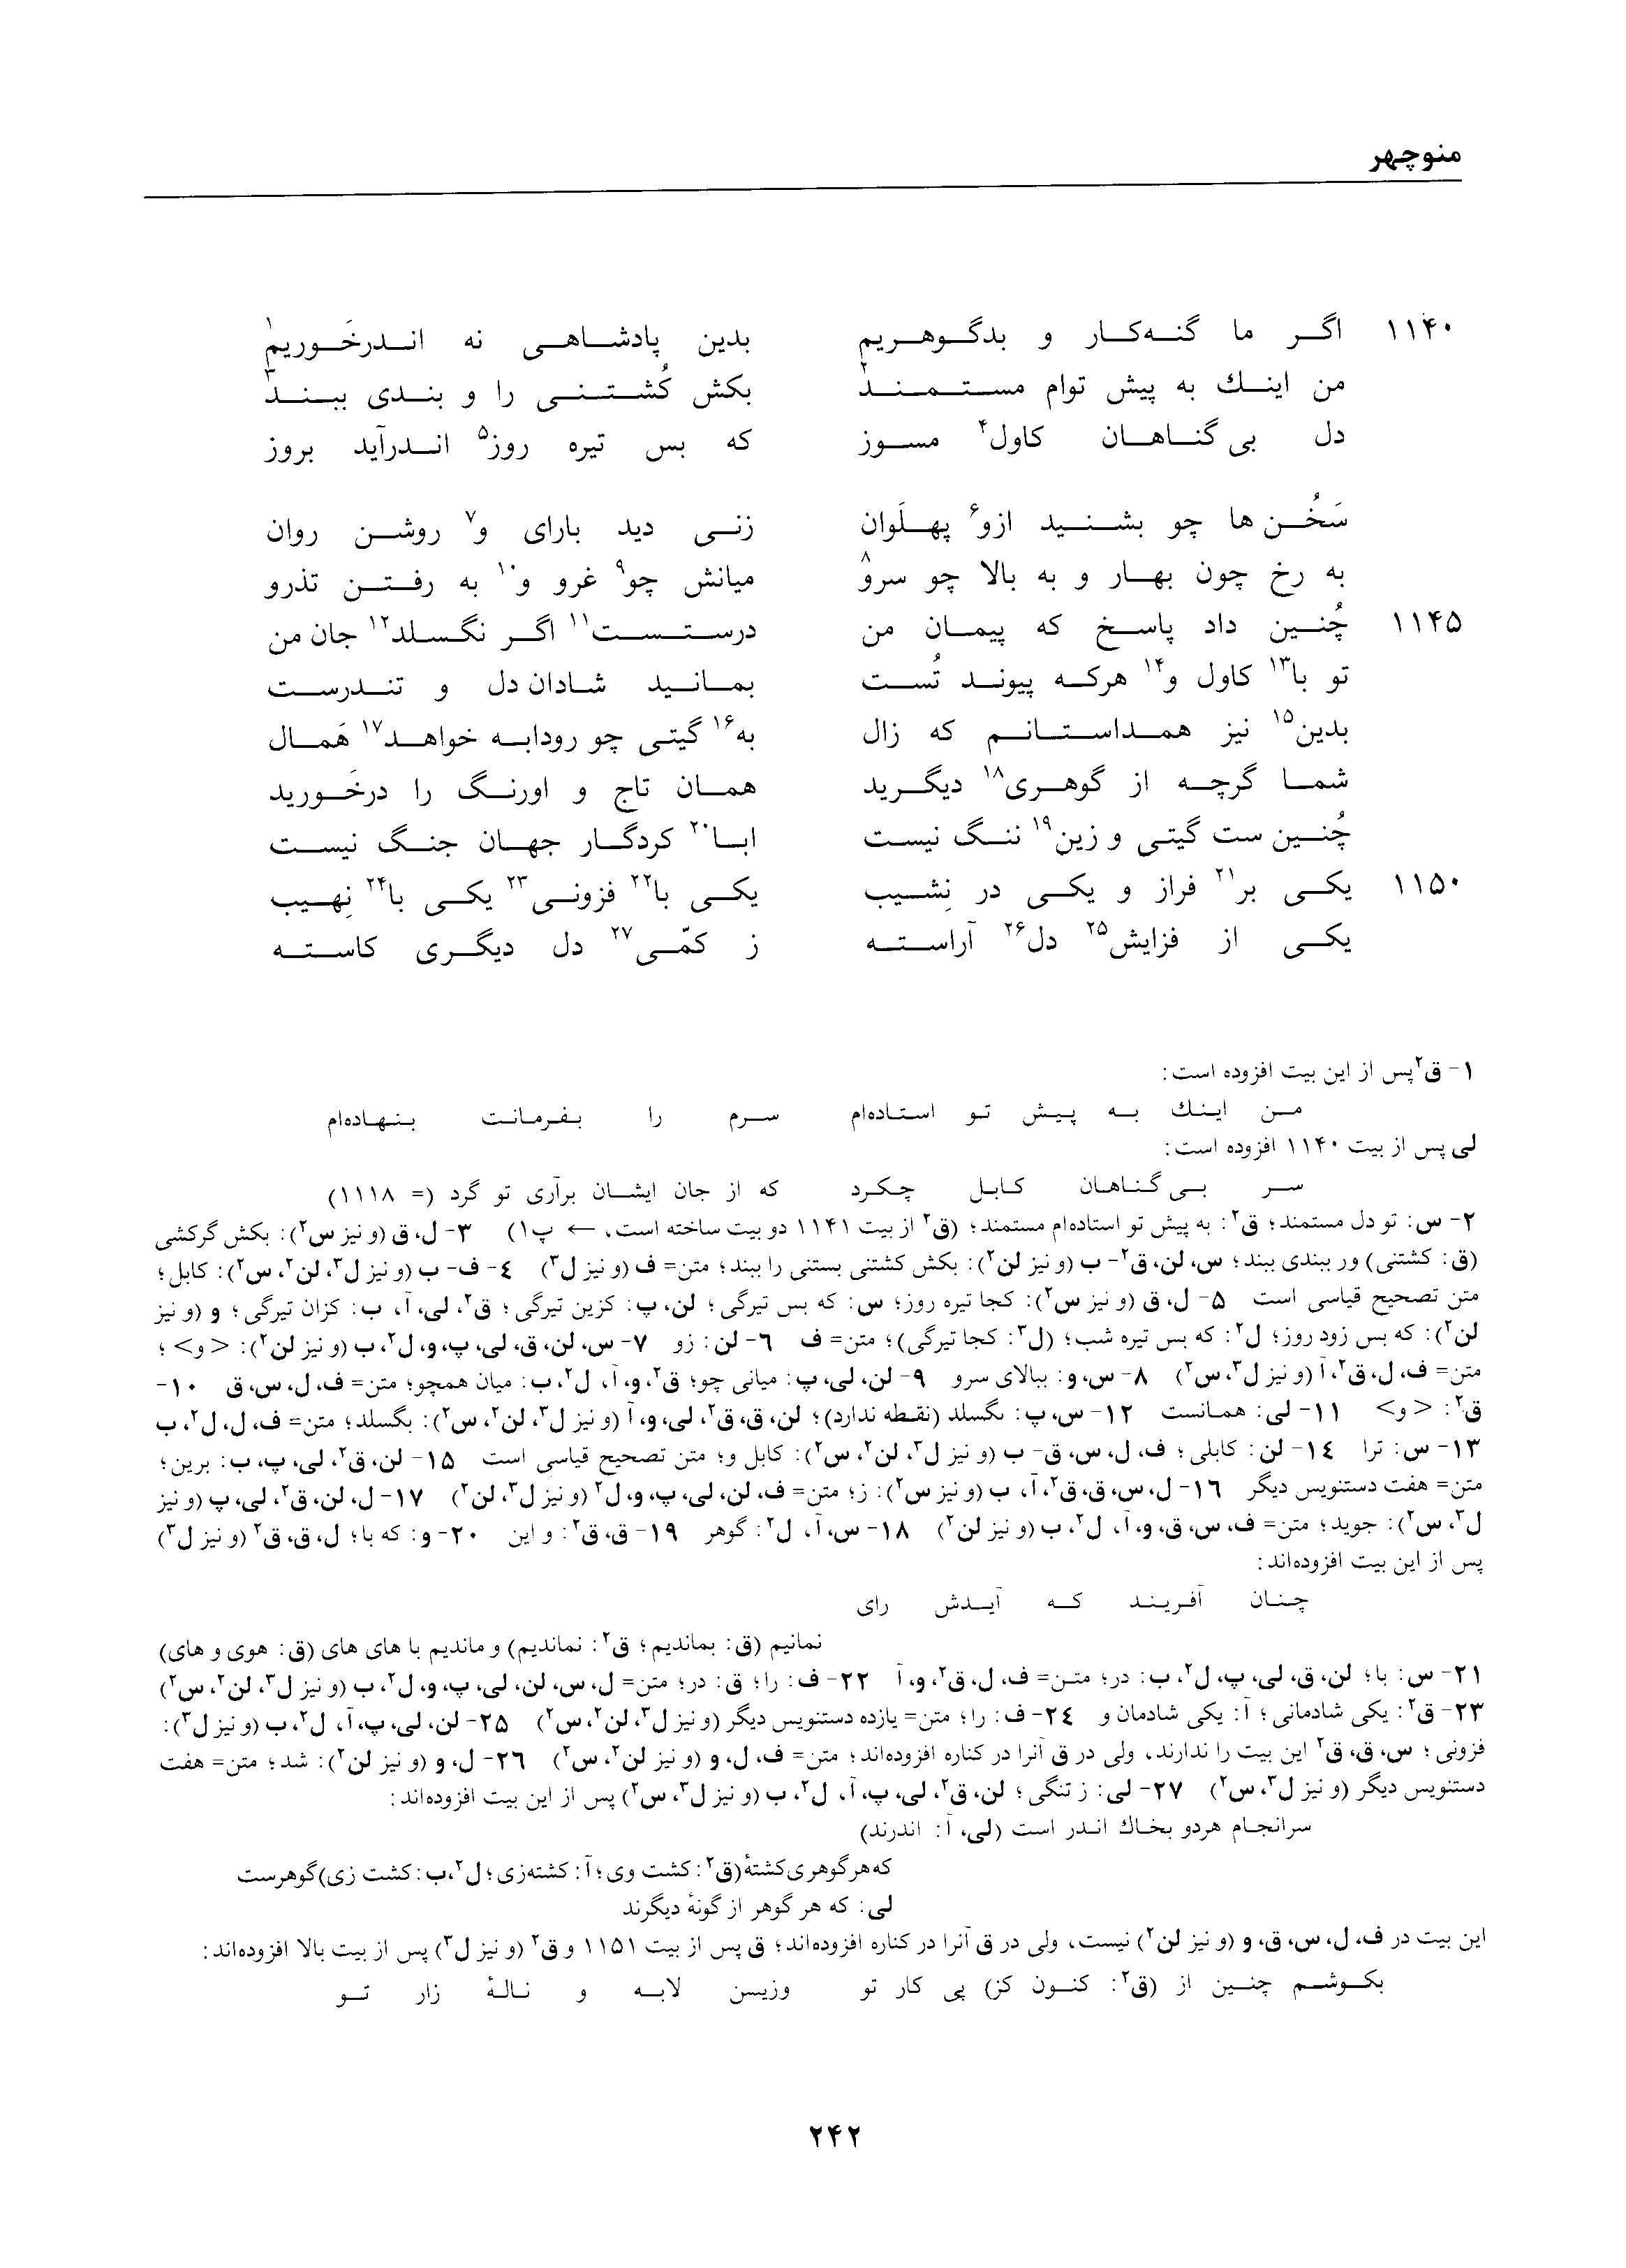 منوچهر
۱۱۴۰ اگر ما گنه‌کار و بدگوهریم بدین پادشاهی نه اندرخَوریم۱
من اینك به پیش توام مستمند۲ بکش کُشتنی را و بندی ببند۳
دل بی‌گناهان کاول۴ مسوز که بس تیره روز۵ اندرآید بروز
سَخُن‌ها چو بشنید ازو۶ پهلَوان زنی دید بارای و۷ روشن روان
به رخ چون بهار و به بالا چو سرو۸ میانش چو۹ غرو و۱۰ به رفتن تذرو
۱۱۴۵ چُنین داد پاسخ که پیمان من درستست۱۱ اگر نگسلد۱۲ جان من
تو با۱۳ کاول و۱۴ هرکه پیوند تُست بمانید شادان دل و تندرست
بدین۱۵ نیز همداستانم که زال به۱۶ گیتی چو رودابه خواهد۱۷ هَمال
شما گرچه از گوهری۱۸ دیگرید همان تاج و اورنگ را درخَورید
چُنین ست گیتی و زین۱۹ ننگ نیست ابا۲۰ کردگار جهان جنگ نیست
۱۱۵۰ یکی بر۲۱ فراز و یکی در نِشیب یکی با۲۲ فزونی۲۳ یکی با۲۴ نِهیب
یکی از فزایش۲۵ دل۲۶ آراسته ز کمّی۲۷ دل دیگری کاسته
۱- ق۲ پس از این بیت افزوده است:
من اینك به پیش تو استاده‌ام سرم را بفرمانت بنهاده‌ام
لی پس از بیت ۱۱۴۰ افزوده است:
سر بی‌گناهان کابل چکرد که از جان ایشان برآری تو گرد (= ۱۱۱۸)
۲- س: تو دل مستمند؛ ق۲: به پیش تو استاده‌ام مستمند؛ (ق۲ از بیت ۱۱۴۱ دو بیت ساخته است، ← پ۱) ۳- ل، ق (و نیز س۲): بکش گرکشی
(ق: کشتنی) ور ببندی ببند؛ س، لن، ق۲- ب (و نیز لن۲): بکش کشتنی بستنی را ببند؛ متن= ف (و نیز ل۳) ٤- ف- ب (و نیز ل۳، لن۲، س۲): کابل؛
متن تصحیح قیاسی است ۵- ل، ق (و نیز س۲): کجا تیره روز؛ س: که بس تیرگی؛ لن، پ: کزین تیرگی؛ ق۲، لی، آ، ب: کزان تیرگی؛ و (و نیز
لن۲): که بس زود روز؛ ل۲: که بس تیره شب؛ (ل۳: کجا تیرگی)؛ متن= ف ٦- لن: زو ۷- س، لن، ق، لی، پ، و، ل۲، ب (و نیز لن۲): <و>؛
متن= ف، ل، ق۲، آ (و نیز ل۳، س۲) ۸- س، و: ببالای سرو ۹- لن، لی، پ: میانی چو؛ ق۲، و، آ، ل۲، ب: میان همچو؛ متن= ف، ل، س، ق ۱۰-
ق۲: <و> ۱۱- لی: همانست ۱۲- س، پ: نگسلد (نقطه ندارد)؛ لن، ق، ق۲، لی، و، آ (و نیز ل۳، لن۲، س۲): بگسلد؛ متن= ف، ل، ل۲، ب
۱۳- س: ترا ۱٤- لن: کابلی؛ ف، ل، س، ق- ب (و نیز ل۳، لن۲، س۲): کابل و؛ متن تصحیح قیاسی است ۱۵- لن، ق۲، لی، پ، ب: برین؛
متن= هفت دستنویس دیگر ۱٦- ل، س، ق، ق۲، آ، ب (و نیز س۲): ز؛ متن= ف، لن، لی، پ، و، ل۲ (و نیز ل۳، لن۲) ۱۷- ل، لن، ق۲، لی، پ (و نیز
ل۳، س۲): جوید؛ متن= ف، س، ق، و، آ، ل۲، ب (و نیز لن۲) ۱۸- س، آ، ل۲: گوهر ۱۹- ق، ق۲: و این ۲۰- و: که با؛ ل، ق، ق۲ (و نیز ل۳)
پس از این بیت افزوده‌اند:
چنان آفریند که آیدش رای
نمانیم (ق: بماندیم؛ ق۲: نماندیم) و ماندیم با های های (ق: هوی و های)
۲۱- س: با؛ لن، ق، لی، پ، ل۲، ب: در؛ متن= ف، ل، ق۲، و، آ ۲۲- ف: را؛ ق: در؛ متن= ل، س، لن، لی، پ، و، ل۲، ب (و نیز ل۳، لن۲، س۲)
۲۳- ق۲: یکی شادمانی؛ آ: یکی شادمان و ۲٤- ف: را؛ متن= یازده دستنویس دیگر (و نیز ل۳، لن۲، س۲) ۲۵- لن، لی، پ، آ، ل۲، ب (و نیز ل۳):
فزونی؛ س، ق، ق۲ این بیت را ندارند، ولی در ق آنرا در کناره افزوده‌اند؛ متن= ف، ل، و (و نیز لن۲، س۲) ۲٦- ل، و (و نیز لن۲): شد؛ متن= هفت
دستنویس دیگر (و نیز ل۳، س۲) ۲۷- لی: ز تنگی؛ لن، ق۲، لی، پ، آ، ل۲، ب (و نیز ل۳، س۲) پس از این بیت افزوده‌اند:
سرانجام هردو بخاك اندر است (لی، آ: اندرند)
که هر گوهری کشتهٔ (ق۲: کشت وی؛ آ: کشته‌زی؛ ل۲، ب: کشت زی) گوهرست
لی: که هر گوهر از گونهٔ دیگرند
این بیت در ف، ل، س، ق، و (و نیز لن۲) نیست، ولی در ق آنرا در کناره افزوده‌اند؛ ق پس از بیت ۱۱۵۱ و ق۲ (و نیز ل۳) پس از بیت بالا افزوده‌اند:
بکوشم چنین از (ق۲: کنون کز) پی کار تو وزیسن لابه و نالهٔ زار تو
۲۴۲